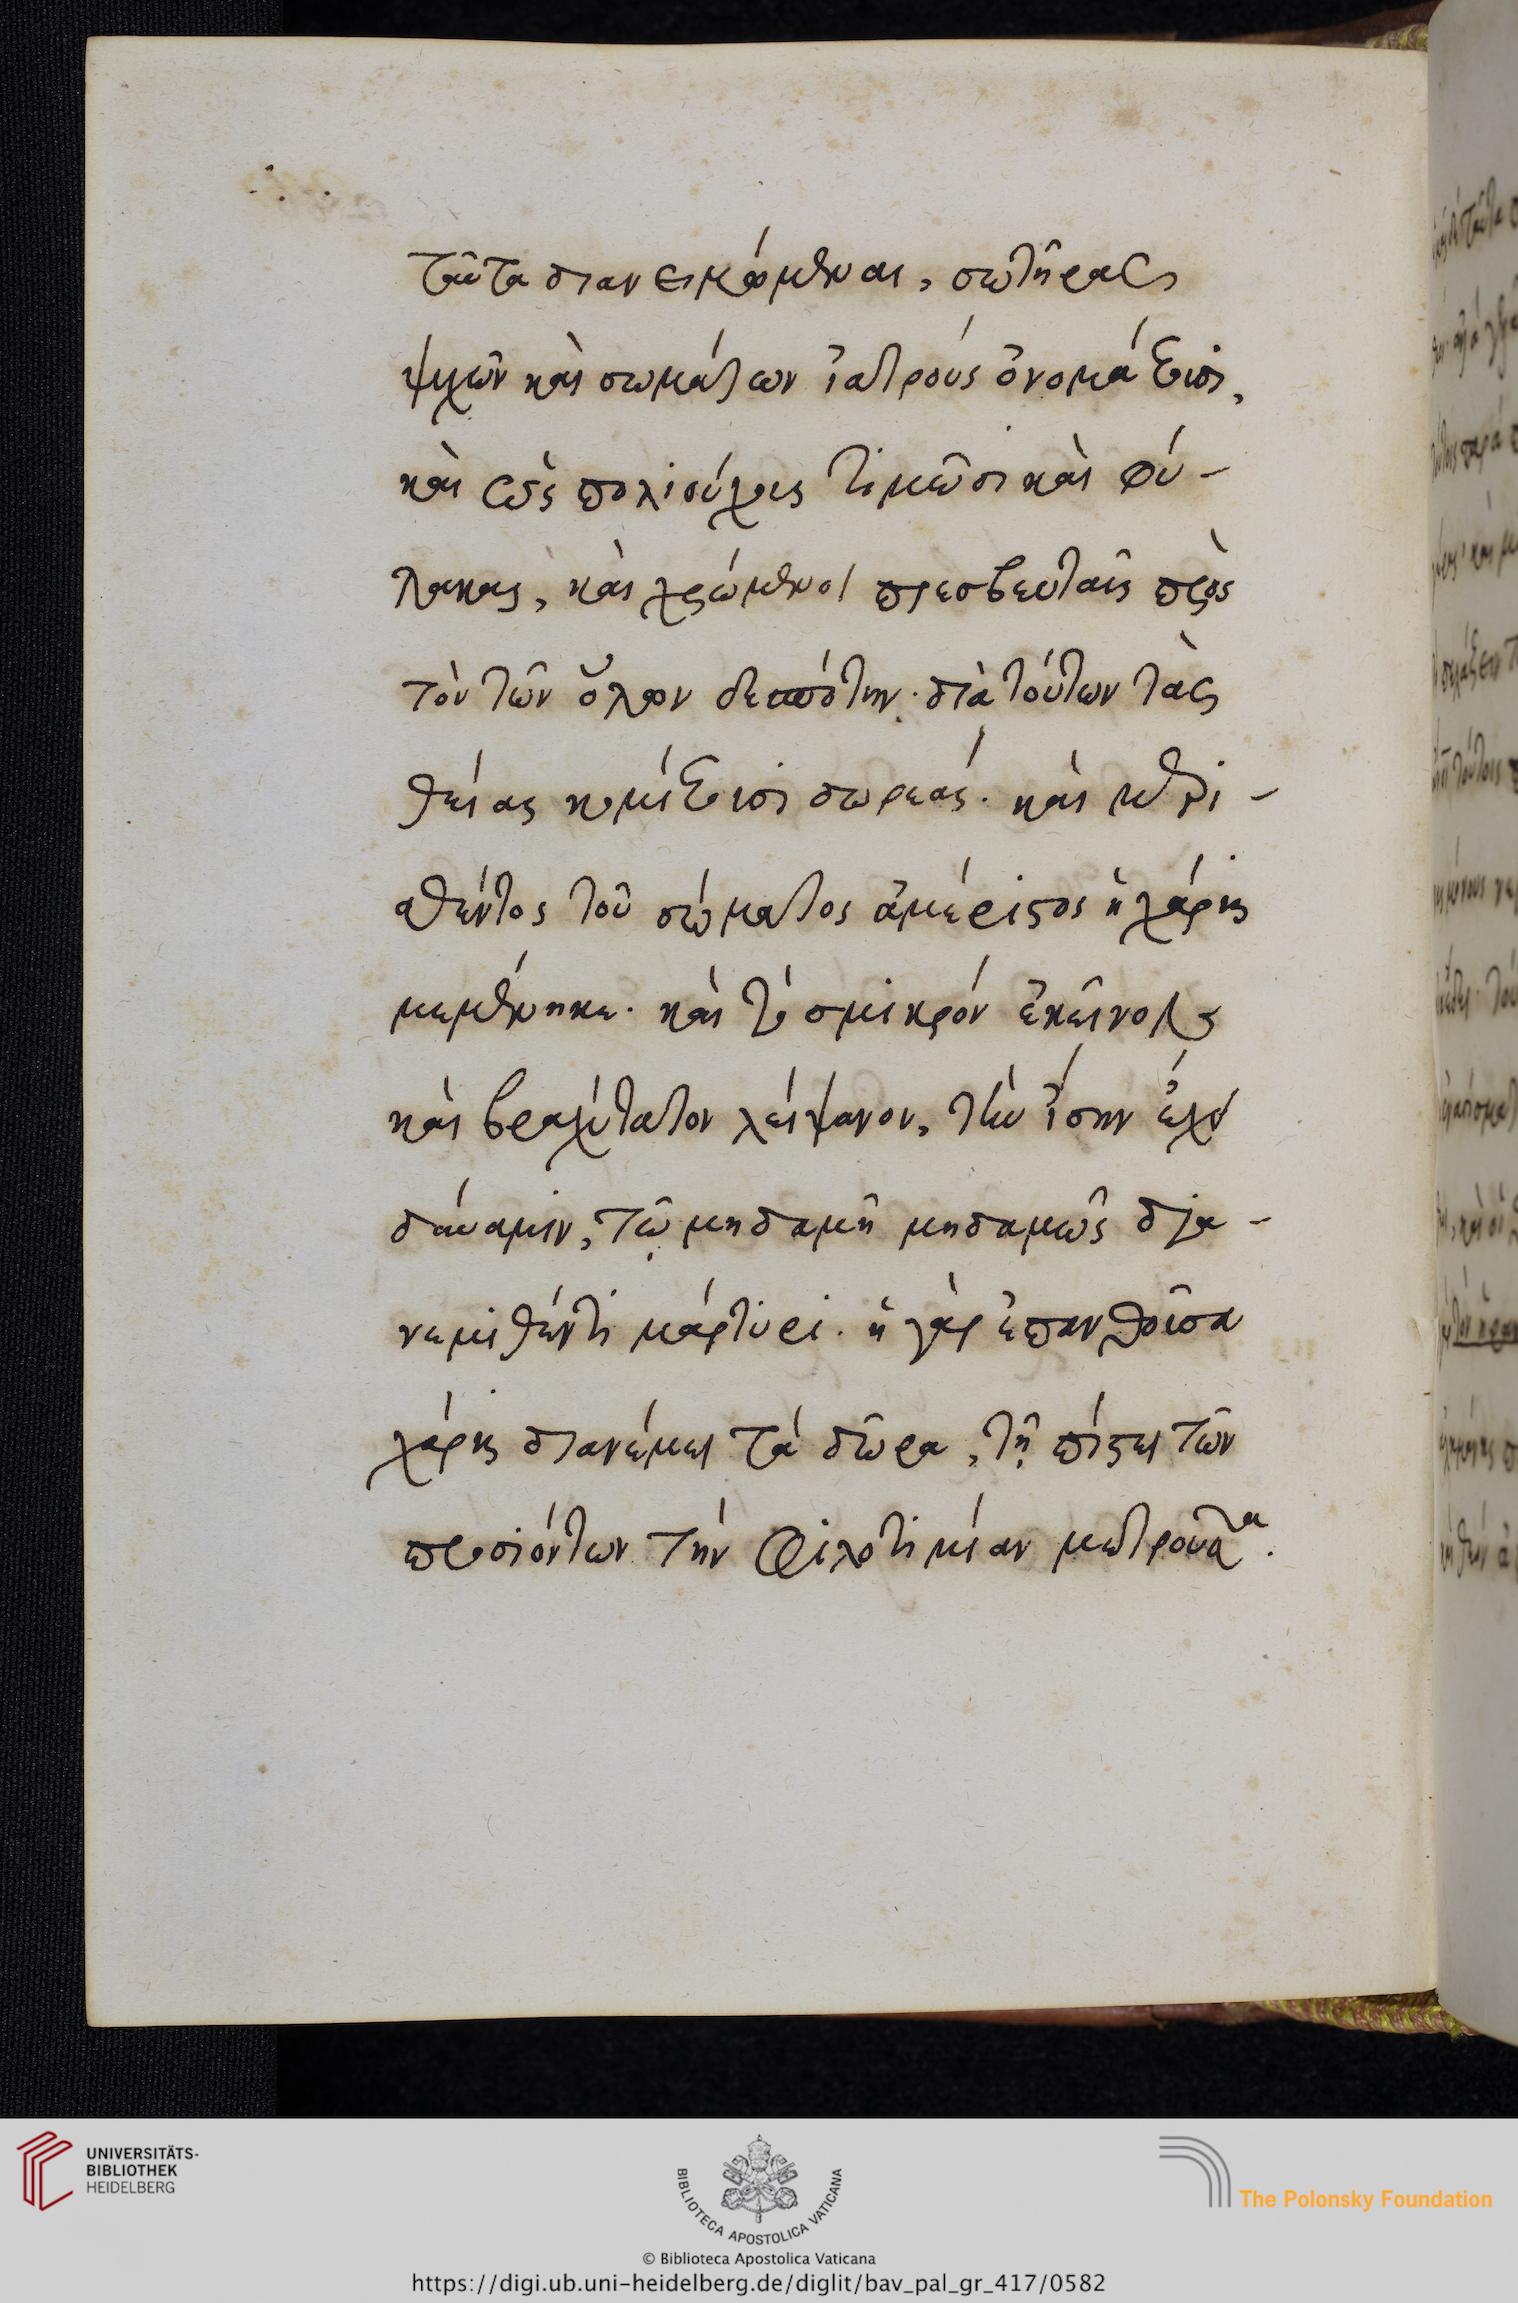 ταῦτα διανειμάμεναι, σωτῆρας
ψυχῶν καὶ σωμάτων ἰατροὺς ὀνομάζουσι,
καὶ ὡς πολιούχους τιμῶσι καὶ φύ-
λακας, καὶ χρώμενοι πρεσβευταῖς πρὸς
τὸν τῶν ὅλων δεσπότην. διὰ τούτων τὰς
θείας κομίζουσι δωρεάς. καὶ μερι-
σθέντος τοῦ σώματος ἀμέριστος ἡ χάρις
μεμένηκε. καὶ τὸ σμικρὸν ἐκεῖνο
καὶ βραχύτατον λείψανον, τὴν ἴσην ἔχει
δύναμιν, τῷ μηδαμῆ μηδαμῶς δια-
νεμηθέντι μάρτυρι. ἡ γὰρ ἐπανθοῦσα
χάρις διανέμει τὰ δῶρα, τῇ πίστει τῶν
προσιόντων τὴν φιλοτιμίαν μετροῦσα.
UNIVERSITÄTS-
BIBLIOTHEK
HEIDELBERG
BIBLIOTECA APOSTOLICA VATICANA
The Polonsky Foundation
© Biblioteca Apostolica Vaticana
https://digi.ub.uni-heidelberg.de/diglit/bav_pal_gr_417/0582